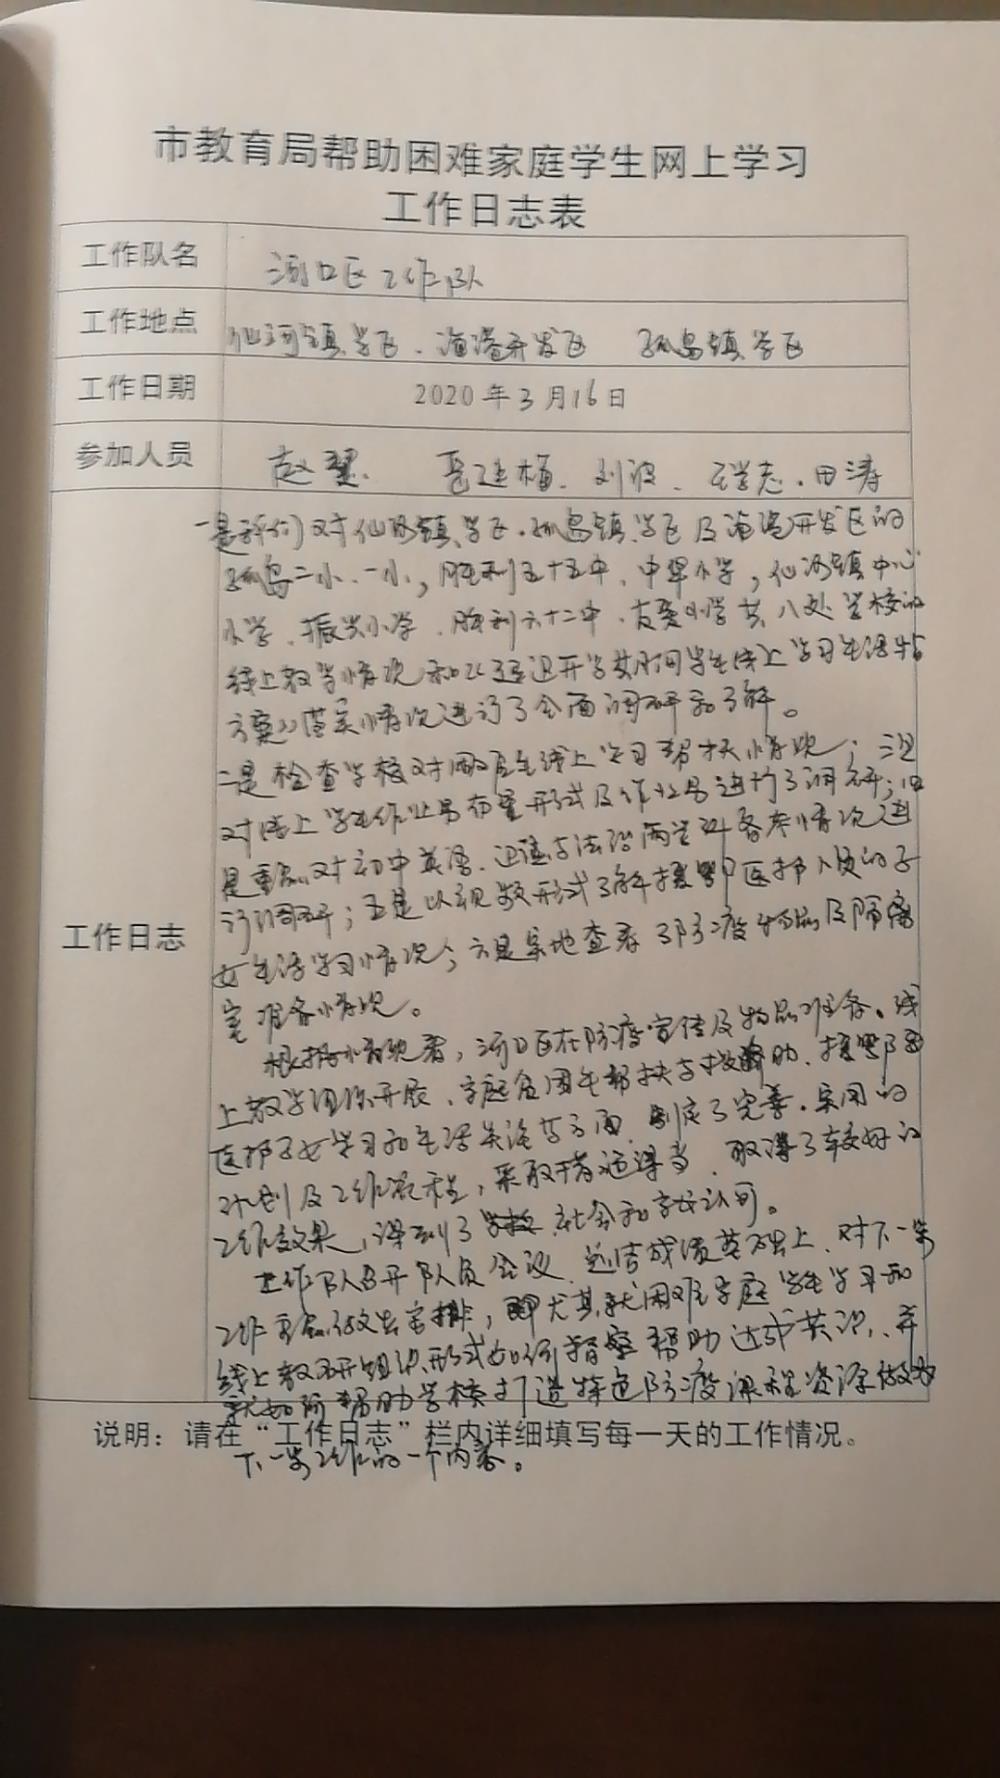 市教育局帮助困难家庭学生网上学习
工作日志表
工作队名 河口区工作队
工作地点 仙河镇学区、海港开发区 孤岛镇学区
工作日期 2020年3月16日
参加人员 赵 刘波、 田涛
一是我们对仙河镇学区、孤岛镇学区及海港开发区的
孤岛二小、一小，胜利五十五中、中华小学，仙河镇中心
小学、振兴小学、胜利六十二中、友爱小学共八处学校的
线上教学情况和《延迟开学期间学生线上学习生活指
方案》落实情况进行了全面调研和了解。
二是检查学校对困难学生线上学习帮扶情况；三是
对线上学生作业布置形式及作业量进行了调研；四
是重点对初中英语、道德与法治两学科备考情况进
行调研；五是以视频形式了解援鄂医护人员的子
女生活学习情况；六是实地查看了防疫物品及隔离
室准备情况。
根据情况看，河口区在防疫宣传及物品准备、线
上教学组织开展、家庭贫困生帮扶与救助、援鄂
医护子女学习和生活关注等方面，制定了完善、实用的
计划及工作流程，采取措施得当，取得了较好的
工作效果，得到了 社会和家长认可。
工作队召开队员会议，总结成绩基础上，对下一步
工作重点做出安排，尤其就困难家庭学生学习和
线上教研组织形式如何指导帮助达成共识，并
就如何帮助学校打造特色防疫课程资源做为
说明：请在“工作日志”栏内详细填写每一天的工作情况。
下一步工作的一个内容。